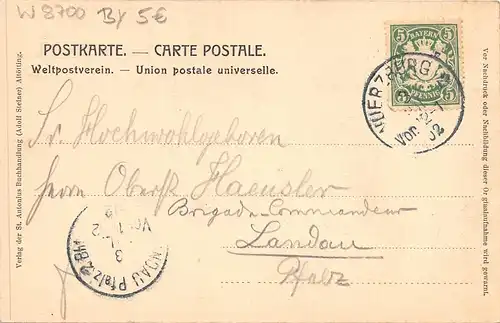 W 8700 By 5€
POSTKARTE. — CARTE POSTALE.
Weltpostverein. — Union postale universelle.
BAYERN
5 5
PFENNIG
WUERZBURG 2
Vor.
02
Sr. Hochwohlgeboren
Herrn Oberst Haeusler
Brigade-Commandeur
Landau
Pfalz
LANDAU Pfalz
3
Verlag der St. Antonius Buchhandlung (Adolf Steiner) Altötting.
Vor Nachdruck oder Nachbildung dieser Originalaufnahme wird gewarnt.